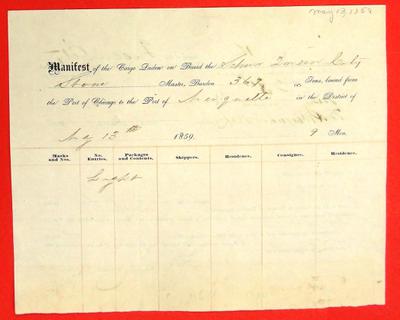 May 13, 1859
Manifest of the Cargo Laden on Board the Schr
Stone Master, Burden 363 Tons, bound from
the Port of Chicago to the Port of Marquette in the District of
May 13th 1859. 9 Men.
Marks and Nos. No. Entries. Packages and Contents. Shippers. Residence. Consignee. Residence.
Light